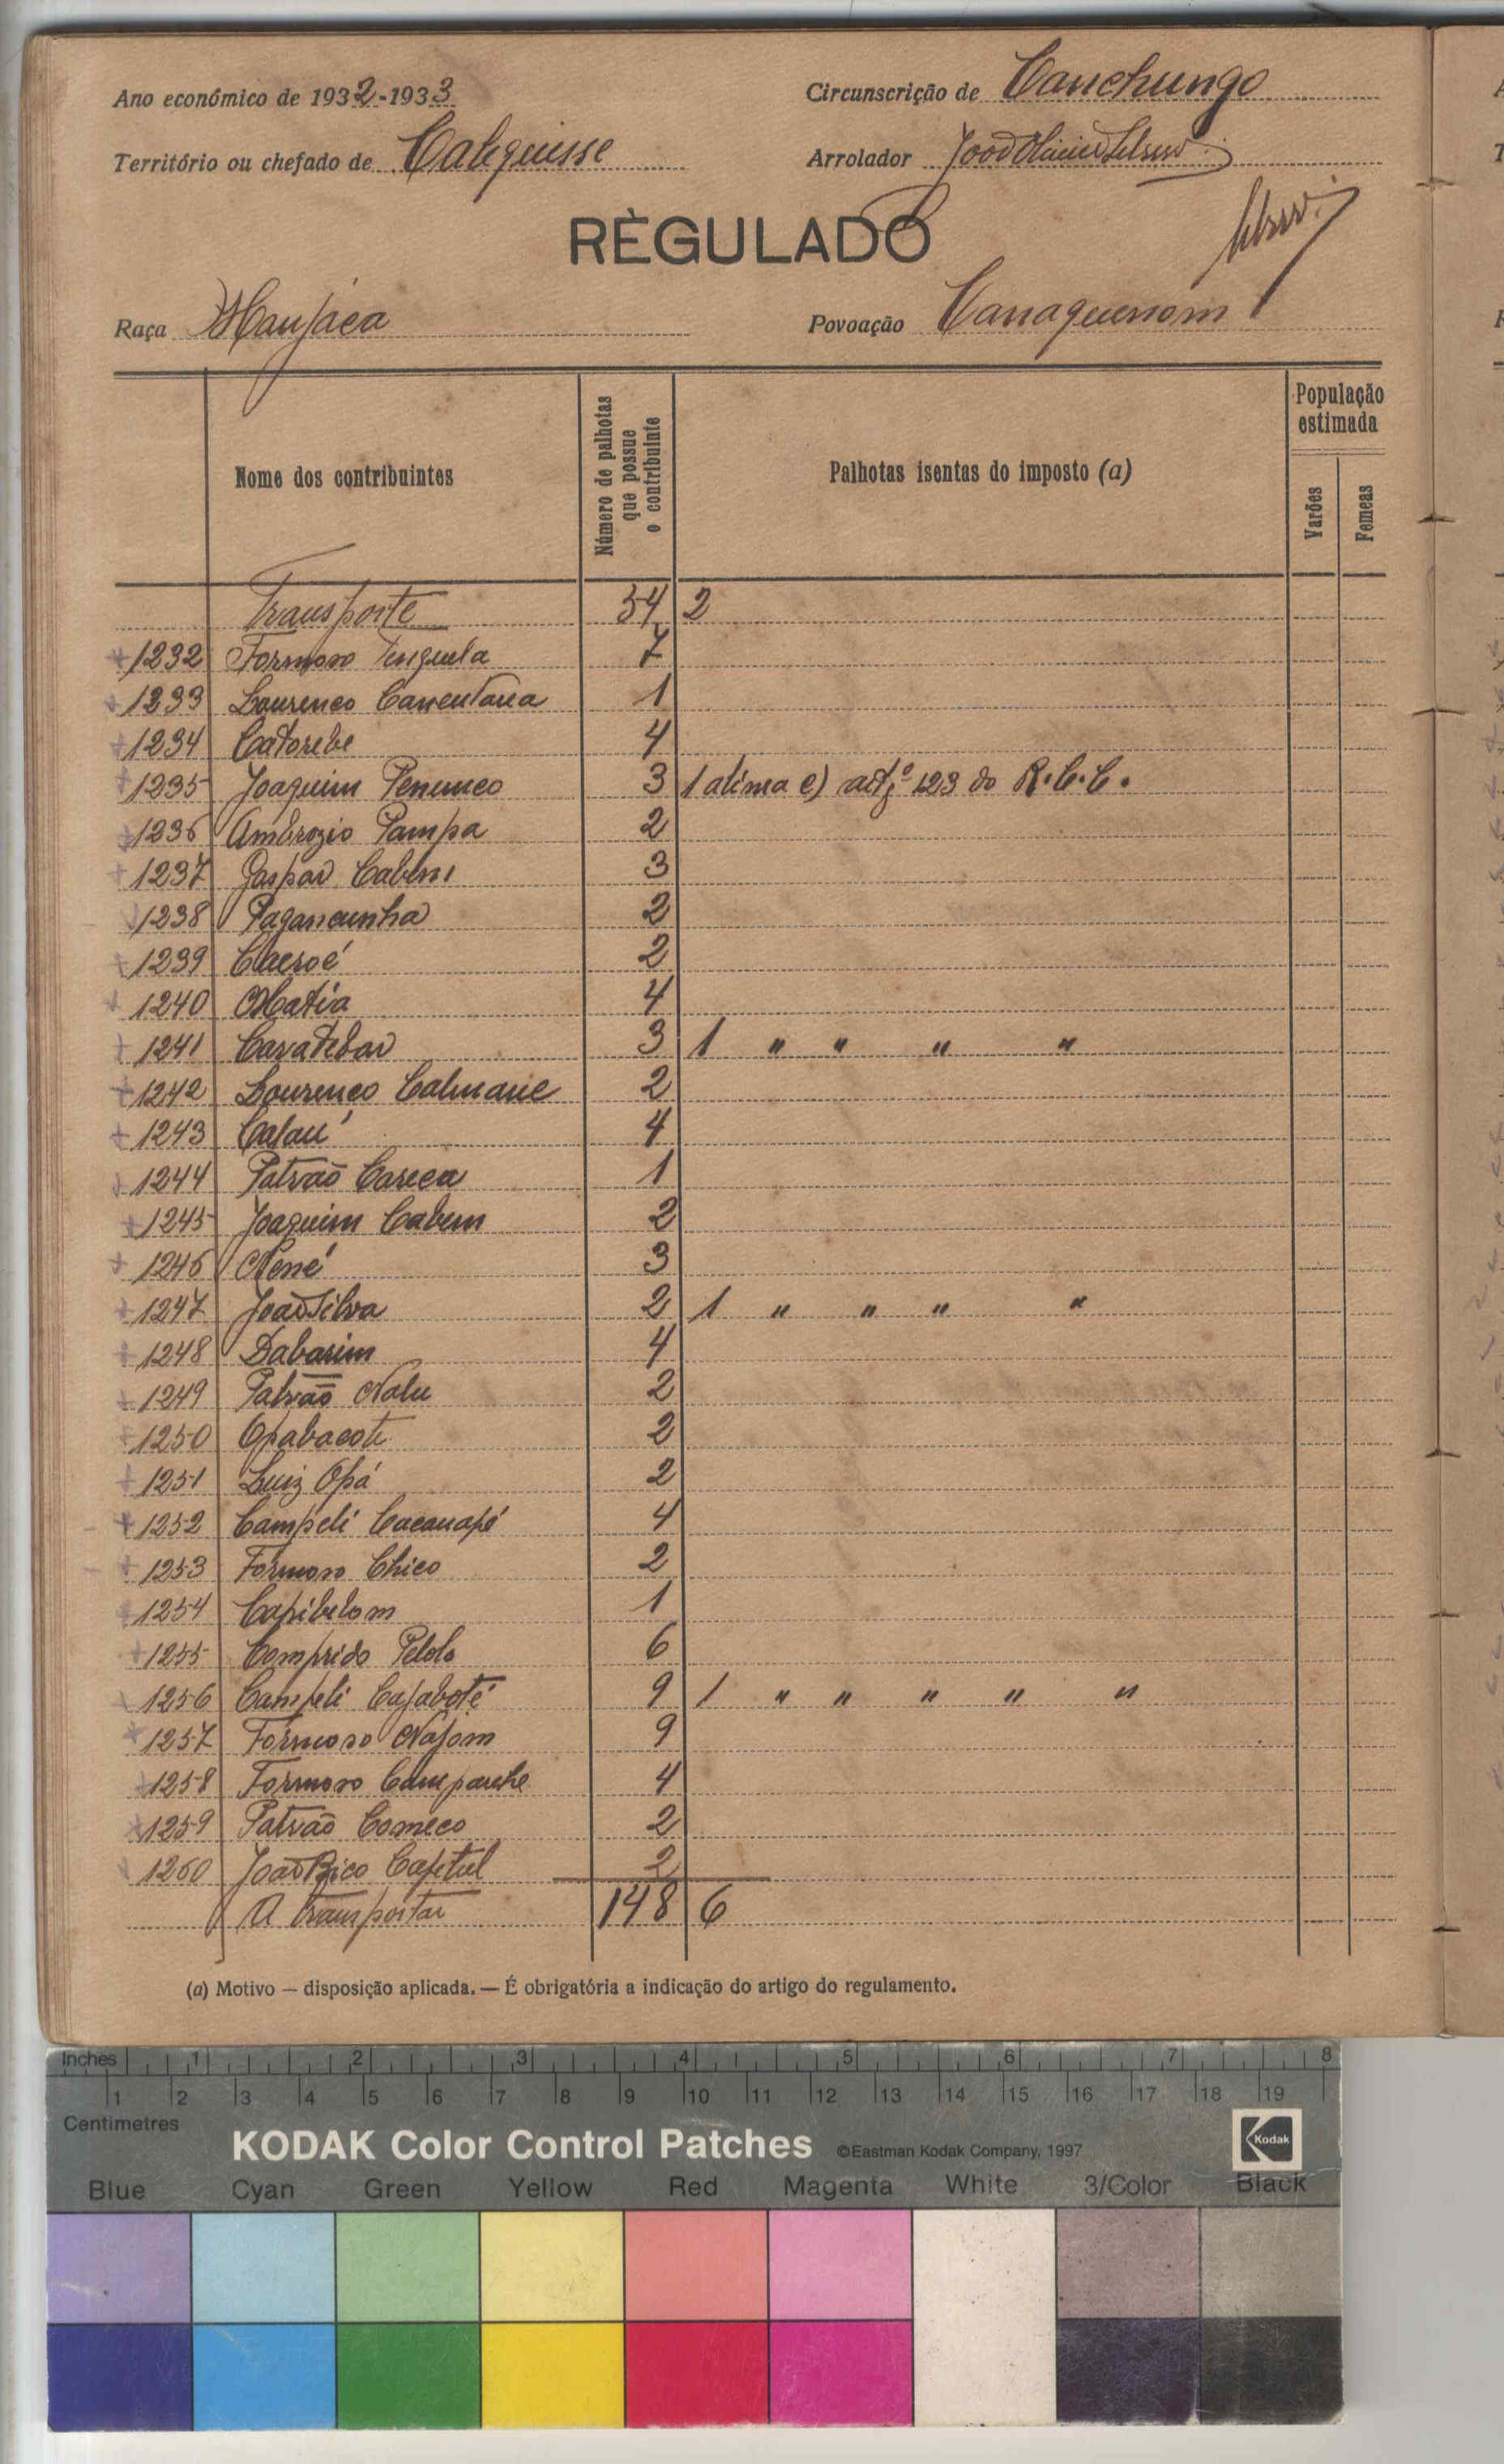 Ano económico de 1932-1933
Circunscrição de Canchungo
Território ou chefado de Calequisse
Arrolador
RÈGULADO
Raça Manjaca
Povoação
Nome dos contribuintes
Número de palhotas que possue o contribuinte
Palhotas isentas do imposto (a)
População estimada
Varões
Femeas
Transporte 54 2
1232 Formoso 7
1233 Lourenco 1
1234 Catorebe 4
1235 Joaquim 3 1 alínea e) artº 123 do R.C.C.
1236 Ambrozio Pampa 2
1237 Gaspar 3
1238 Pagancunha 2
1239 2
1240 Matia 4
1241 3 1 " " " "
1242 Lourenco Calmane 2
1243 Calau 4
1244 Patrão Careca 1
1245 Joaquim Cabem 2
1246 Nené 3
1247 João Silva 2 1 " " " "
1248 Dabarim 4
1249 Patrão Nalu 2
1250 Opabacote 2
1251 Luiz Opá 2
1252 Campeli Cacanapé 4
1253 Formoso Chico 2
1254 Capibelom 1
1255 Comprido Pelolo 6
1256 Campeli Cajaboté 9 1 " " " " "
1257 Formoso Najom 9
1258 Formoso 4
1259 Patrão Comeco 2
1260 João Bico 2
A transportar 148 6
(a) Motivo — disposição aplicada. — É obrigatória a indicação do artigo do regulamento.
Inches 1 2 3 4 5 6 7 8
1 2 3 4 5 6 7 8 9 10 11 12 13 14 15 16 17 18 19
Centimetres
KODAK Color Control Patches ©Eastman Kodak Company, 1997 Kodak
Blue Cyan Green Yellow Red Magenta White 3/Color Black